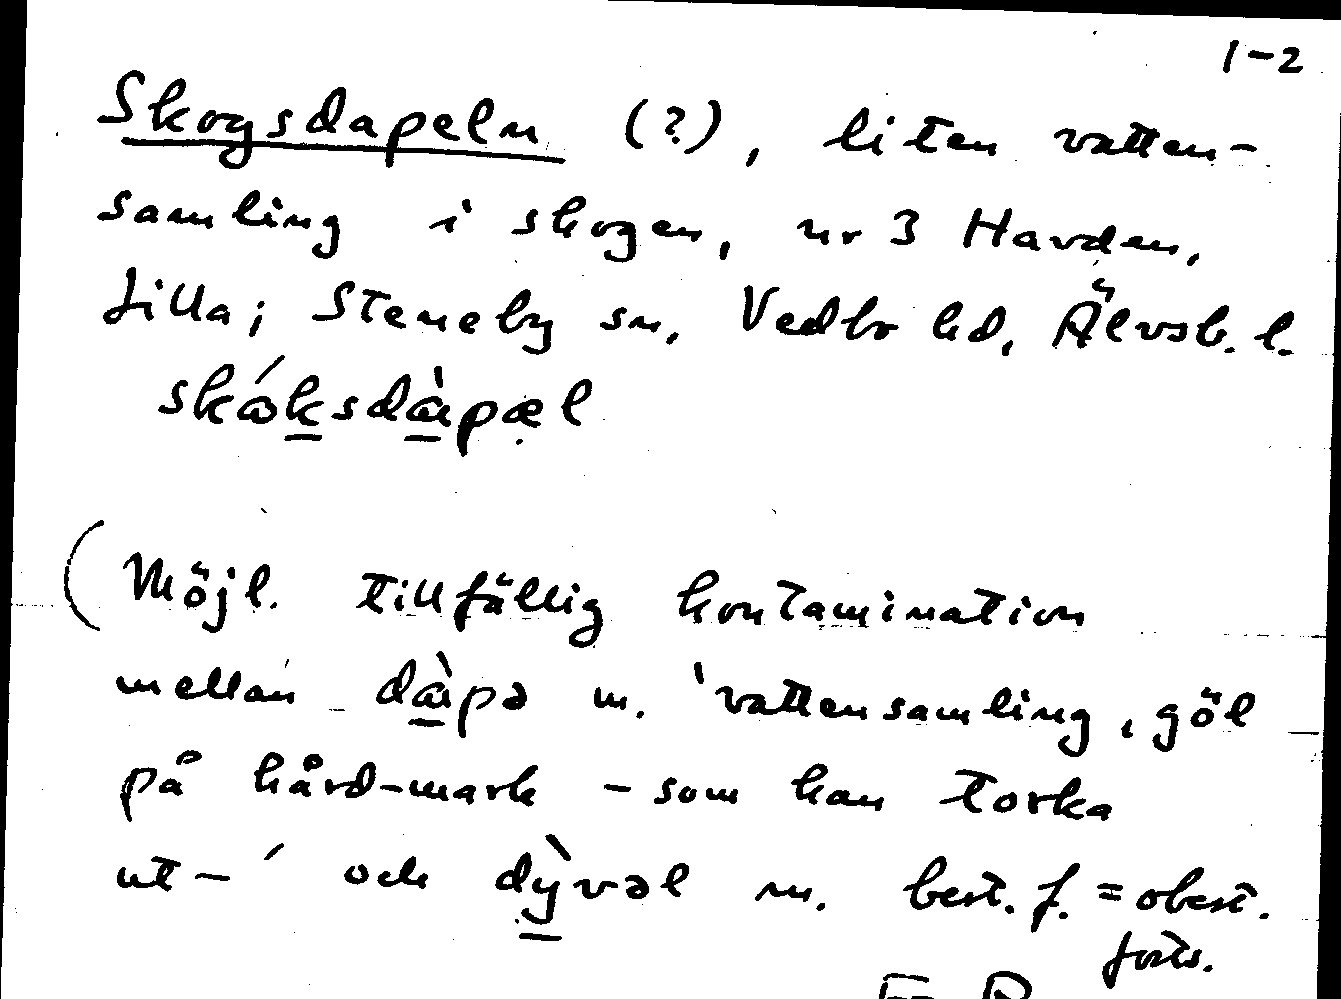 1-2
Skogsdapeln (?), liten vatten-
samling i skogen, nr 3 Havden,
Lilla; Steneby sn, Vedbo hd, Älvsb. l.
skáksdàpæl
(Möjl. tillfällig kontamination
mellan dàpə m. 'vattensamling, göl
på hård-mark - som kan torka
ut-' och dỳvəl m. best. f. = obest.
forts.